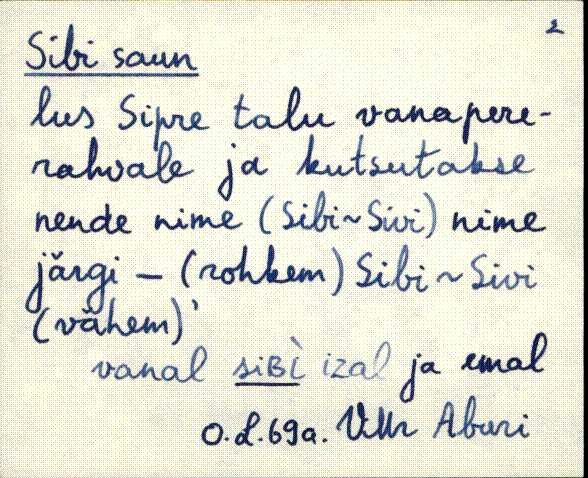 2
Sibi saun
lus Sipre talu vanapere-
rahvale ja kutsutakse
nende nime (Sibi ~ Sivi) nime
järgi – (rohkem) Sibi ~ Sivi
(vähem)'
vanal siʙì izal ja emal
O.L. 69a. VMr Aburi